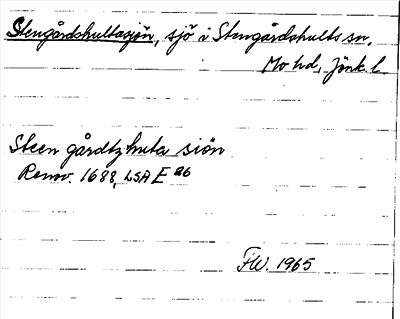 Stengårdshultasjön, sjö i Stengårdshults sn,
Mo hd, Jönk. l.
Steen gårdtzhuta siön
Renov. 1688, LSA E 26
F.W. 1965